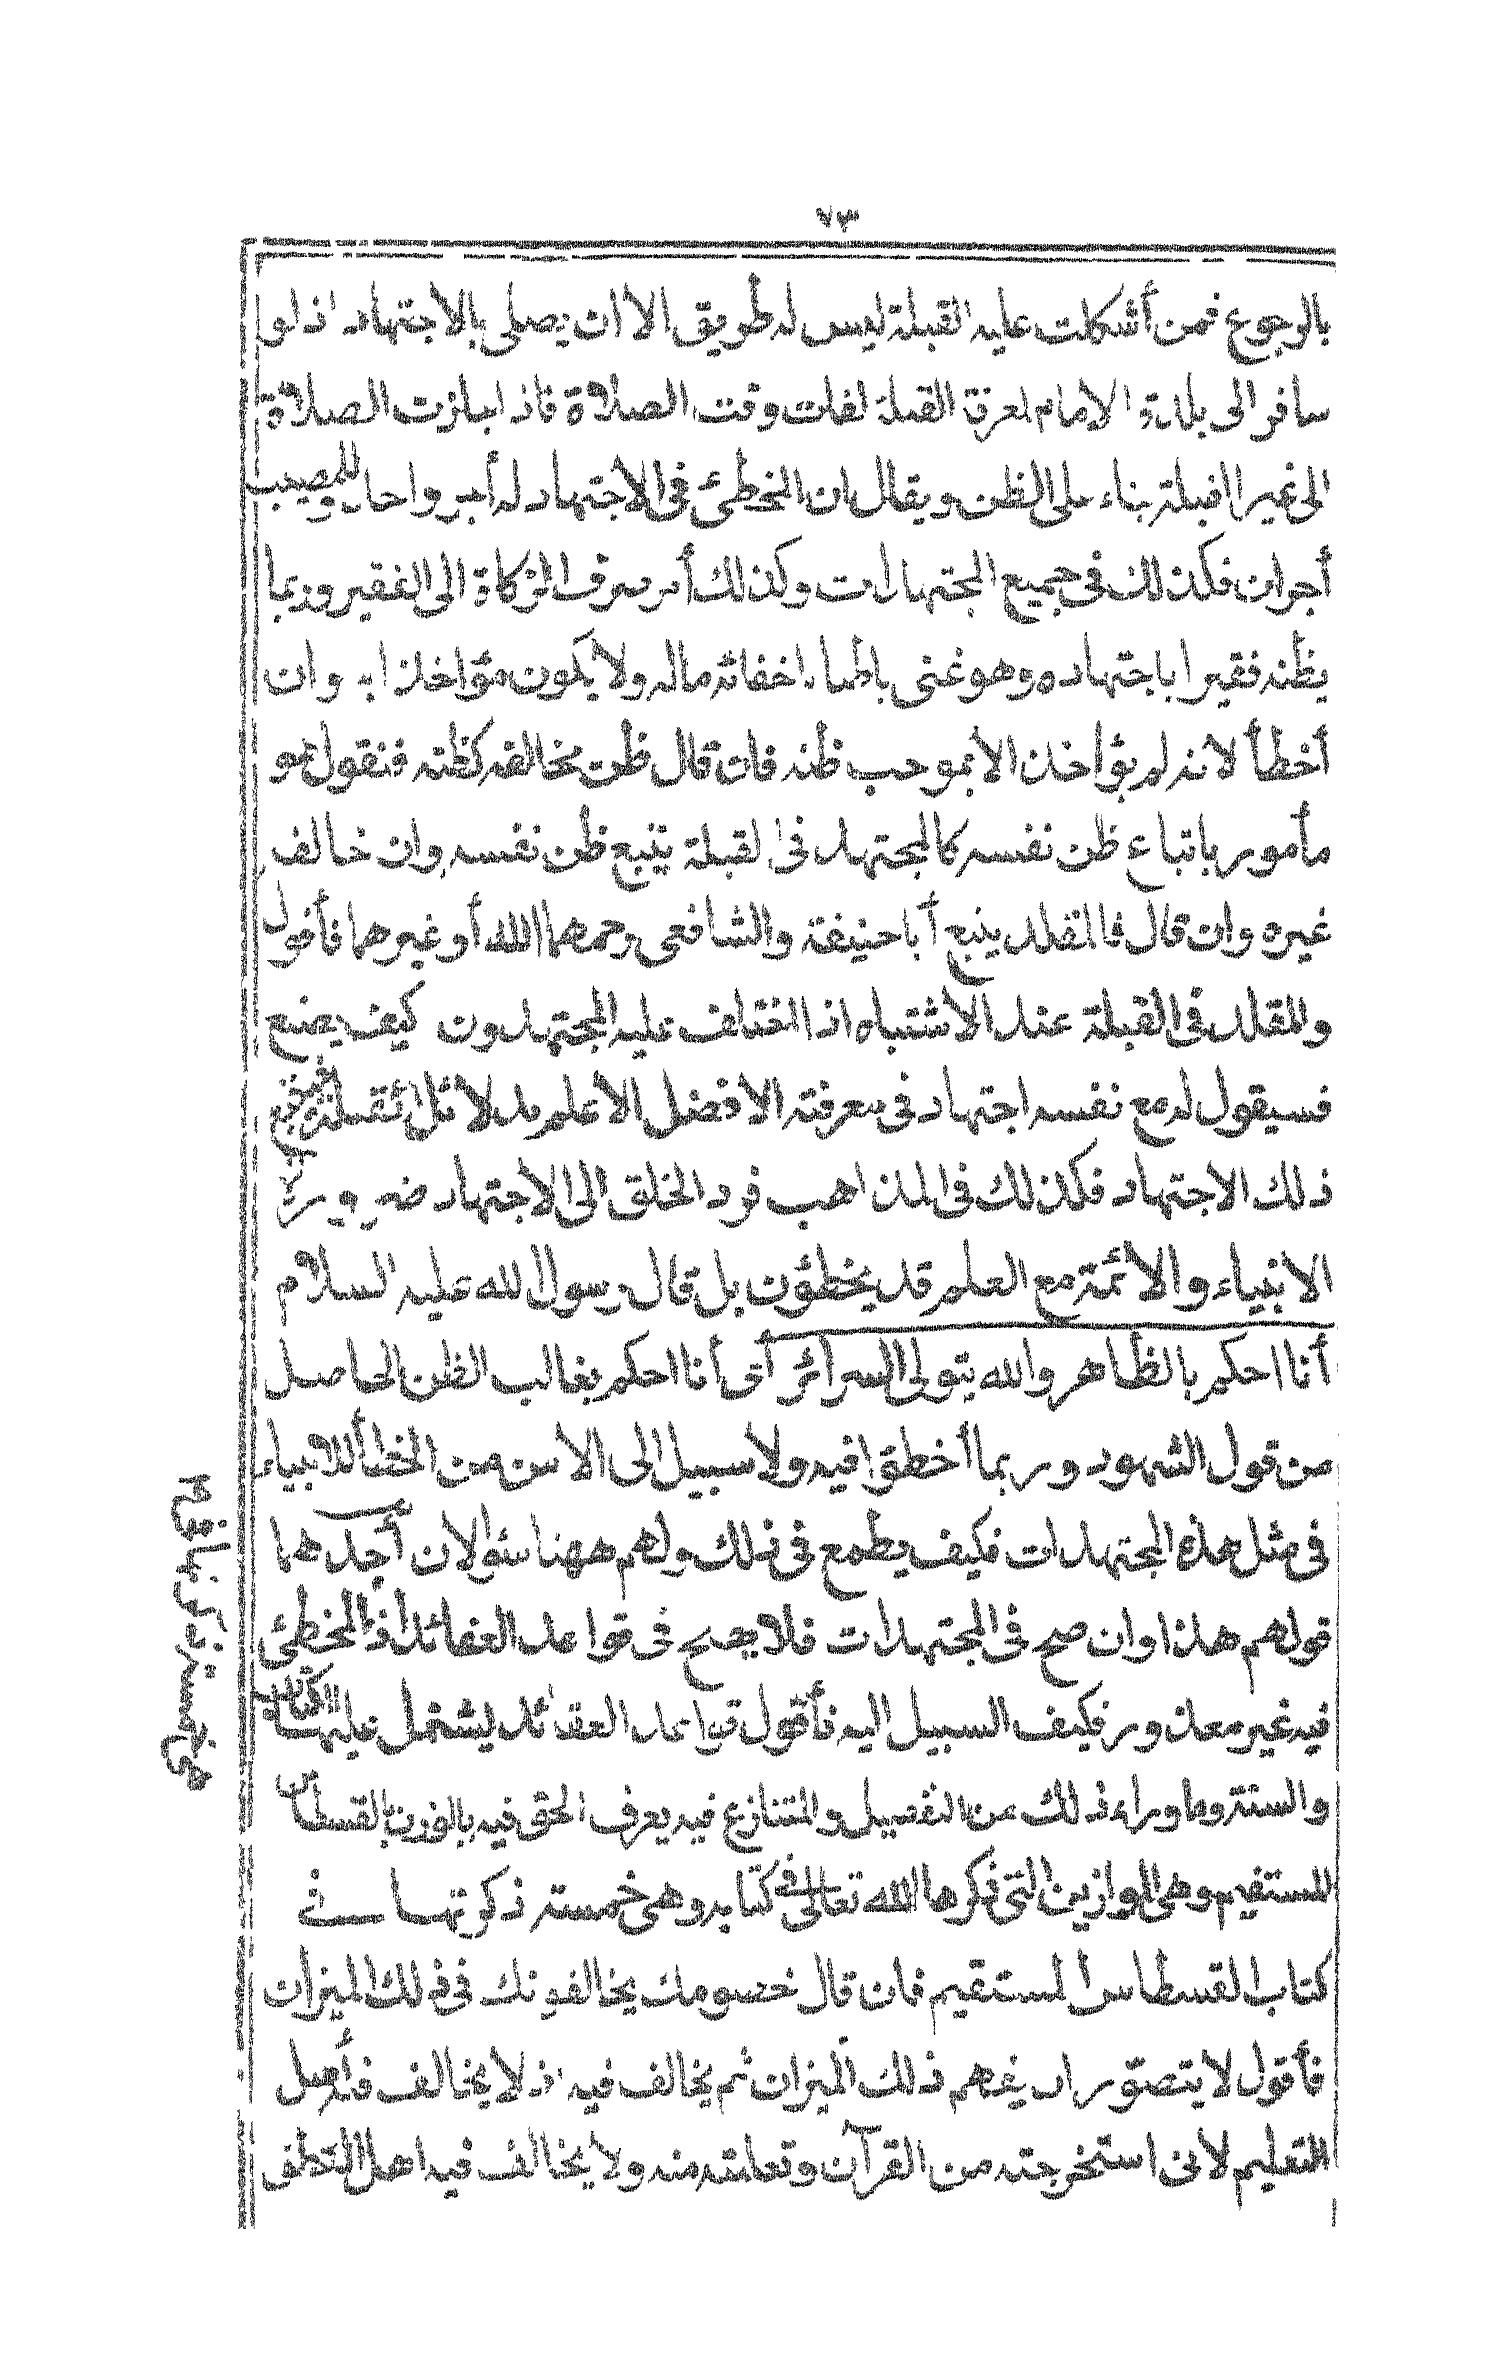 ٧٣
بالرجوع فمن أشكلت عليه القبلة ليس له طريق الا ان يصلى بالاجتهاد اذ لو
سافر الى بلدة الامام لمعرفة القبلة لفات وقت الصلاة فاذا جازت الصلاة
الى غير القبلة بناء على الظن ويقال ان المخطئ فى الاجتهاد له أجر واحد وللمصيب
أجران فكذلك فى جميع المجتهدات وكذلك أمر صرف الزكاة الى الفقير وربما
يظنه فقيرا باجتهاده وهو غنى باطنا باخفائه ماله ولا يكون مؤاخذا به وان
أخطأ لانه لم يؤاخذ الا بموجب ظنه فان قال ظن مخالفه كظنه فنقول هو
مأمور باتباع ظن نفسه كالمجتهد فى القبلة يتبع ظن نفسه وان خالف
غيره وان قال فالمقلد يتبع أبا حنيفة والشافعى رحمهما الله أو غيرهما فأقول
والمقلد فى القبلة عند الاشتباه اذا اختلف عليه المجتهدون كيف يصنع
فسيقول له مع نفسه اجتهاد فى معرفته الافضل الاعلم بدلائل القبلة فيتبع
ذلك الاجتهاد فكذلك فى المذاهب فرد الخلق الى الاجتهاد ضرورة
الانبياء والائمة مع العلم قد يخطؤن بل قال رسول الله عليه السلام
أنا احكم بالظاهر والله يتولى السرائر أى أنا احكم بغالب الظن الحاصل
من قول الشهود وربما أخطؤا فيه ولا سبيل الى الامن من الخطأ للانبياء
فى مثل هذه المجتهدات فكيف يطمع فى ذلك ولهم ههنا سؤالان أحدهما
قولهم هذا وان صح فى المجتهدات فلا يصح فى قواعد العقائد اذ المخطئ
فيه غير معذور فكيف السبيل اليه فأقول قواعد العقائد يشتمل عليها الكتاب
والسنة وما وراء ذلك من التفصيل والمتنازع فيه يعرف الحق فيه بالوزن بالقسطاس
المستقيم وهى الموازين التى ذكرها الله تعالى فى كتابه وهى خمسة ذكرتها فى
كتاب القسطاس المستقيم فان قال خصومك يخالفونك فى ذلك الميزان
فأقول لا يتصور ان يفهم ذلك الميزان ثم يخالف فيه اذ لا يخالف فيه أهل
التعليم لانى استخرجته من القرآن وتعلمته منه ولا يخالف فيه اهل المنطق